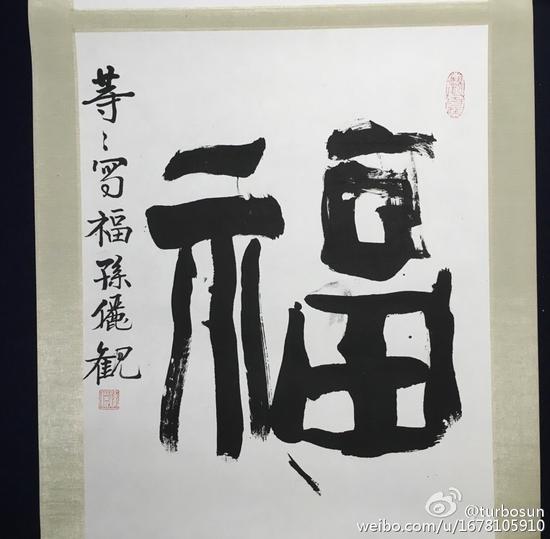 福
等〻寫福孫儷觀
@turbosun
weibo.com/u/1678105910